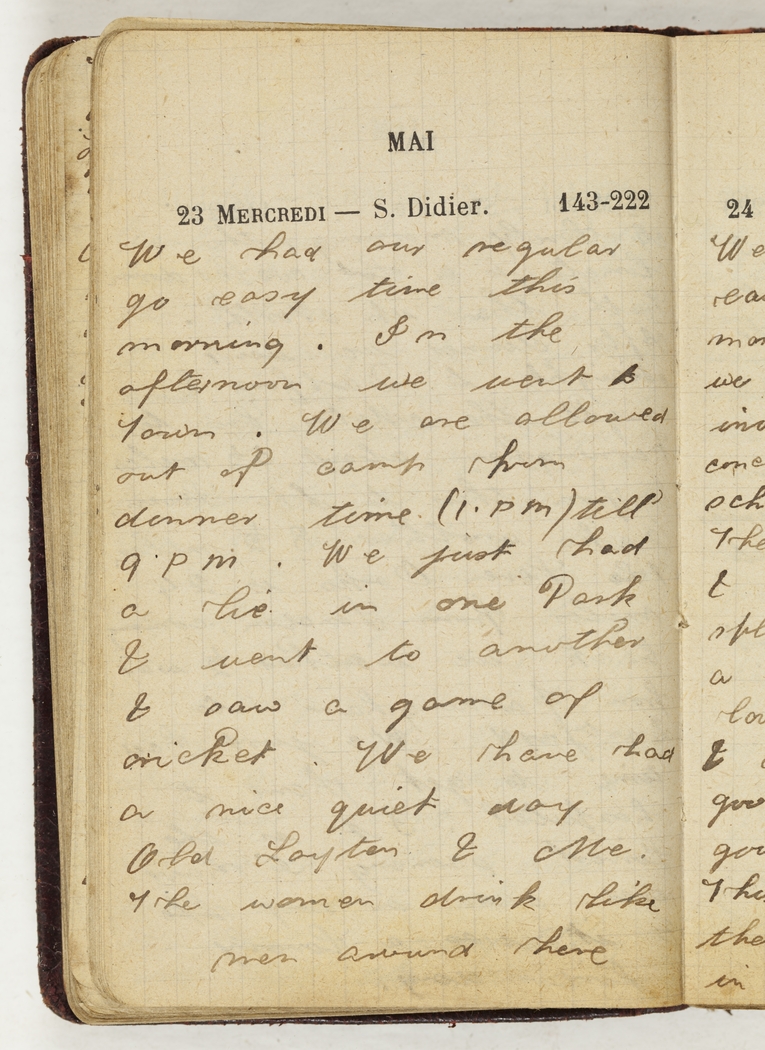 MAI
23 MERCREDI — S. Didier. 143-222
We had our regular
go easy time this
morning. In the
afternoon we went to
Town. We are allowed
out of camp from
dinner time (1.pm) till
9.pm. We just had
a lie in one Park
& went to another
& saw a game of
cricket. We have had
a nice quiet day
Old Layton & Me.
The women drink like
men around here
24
We
mor
we
The
&
a
&
The
in